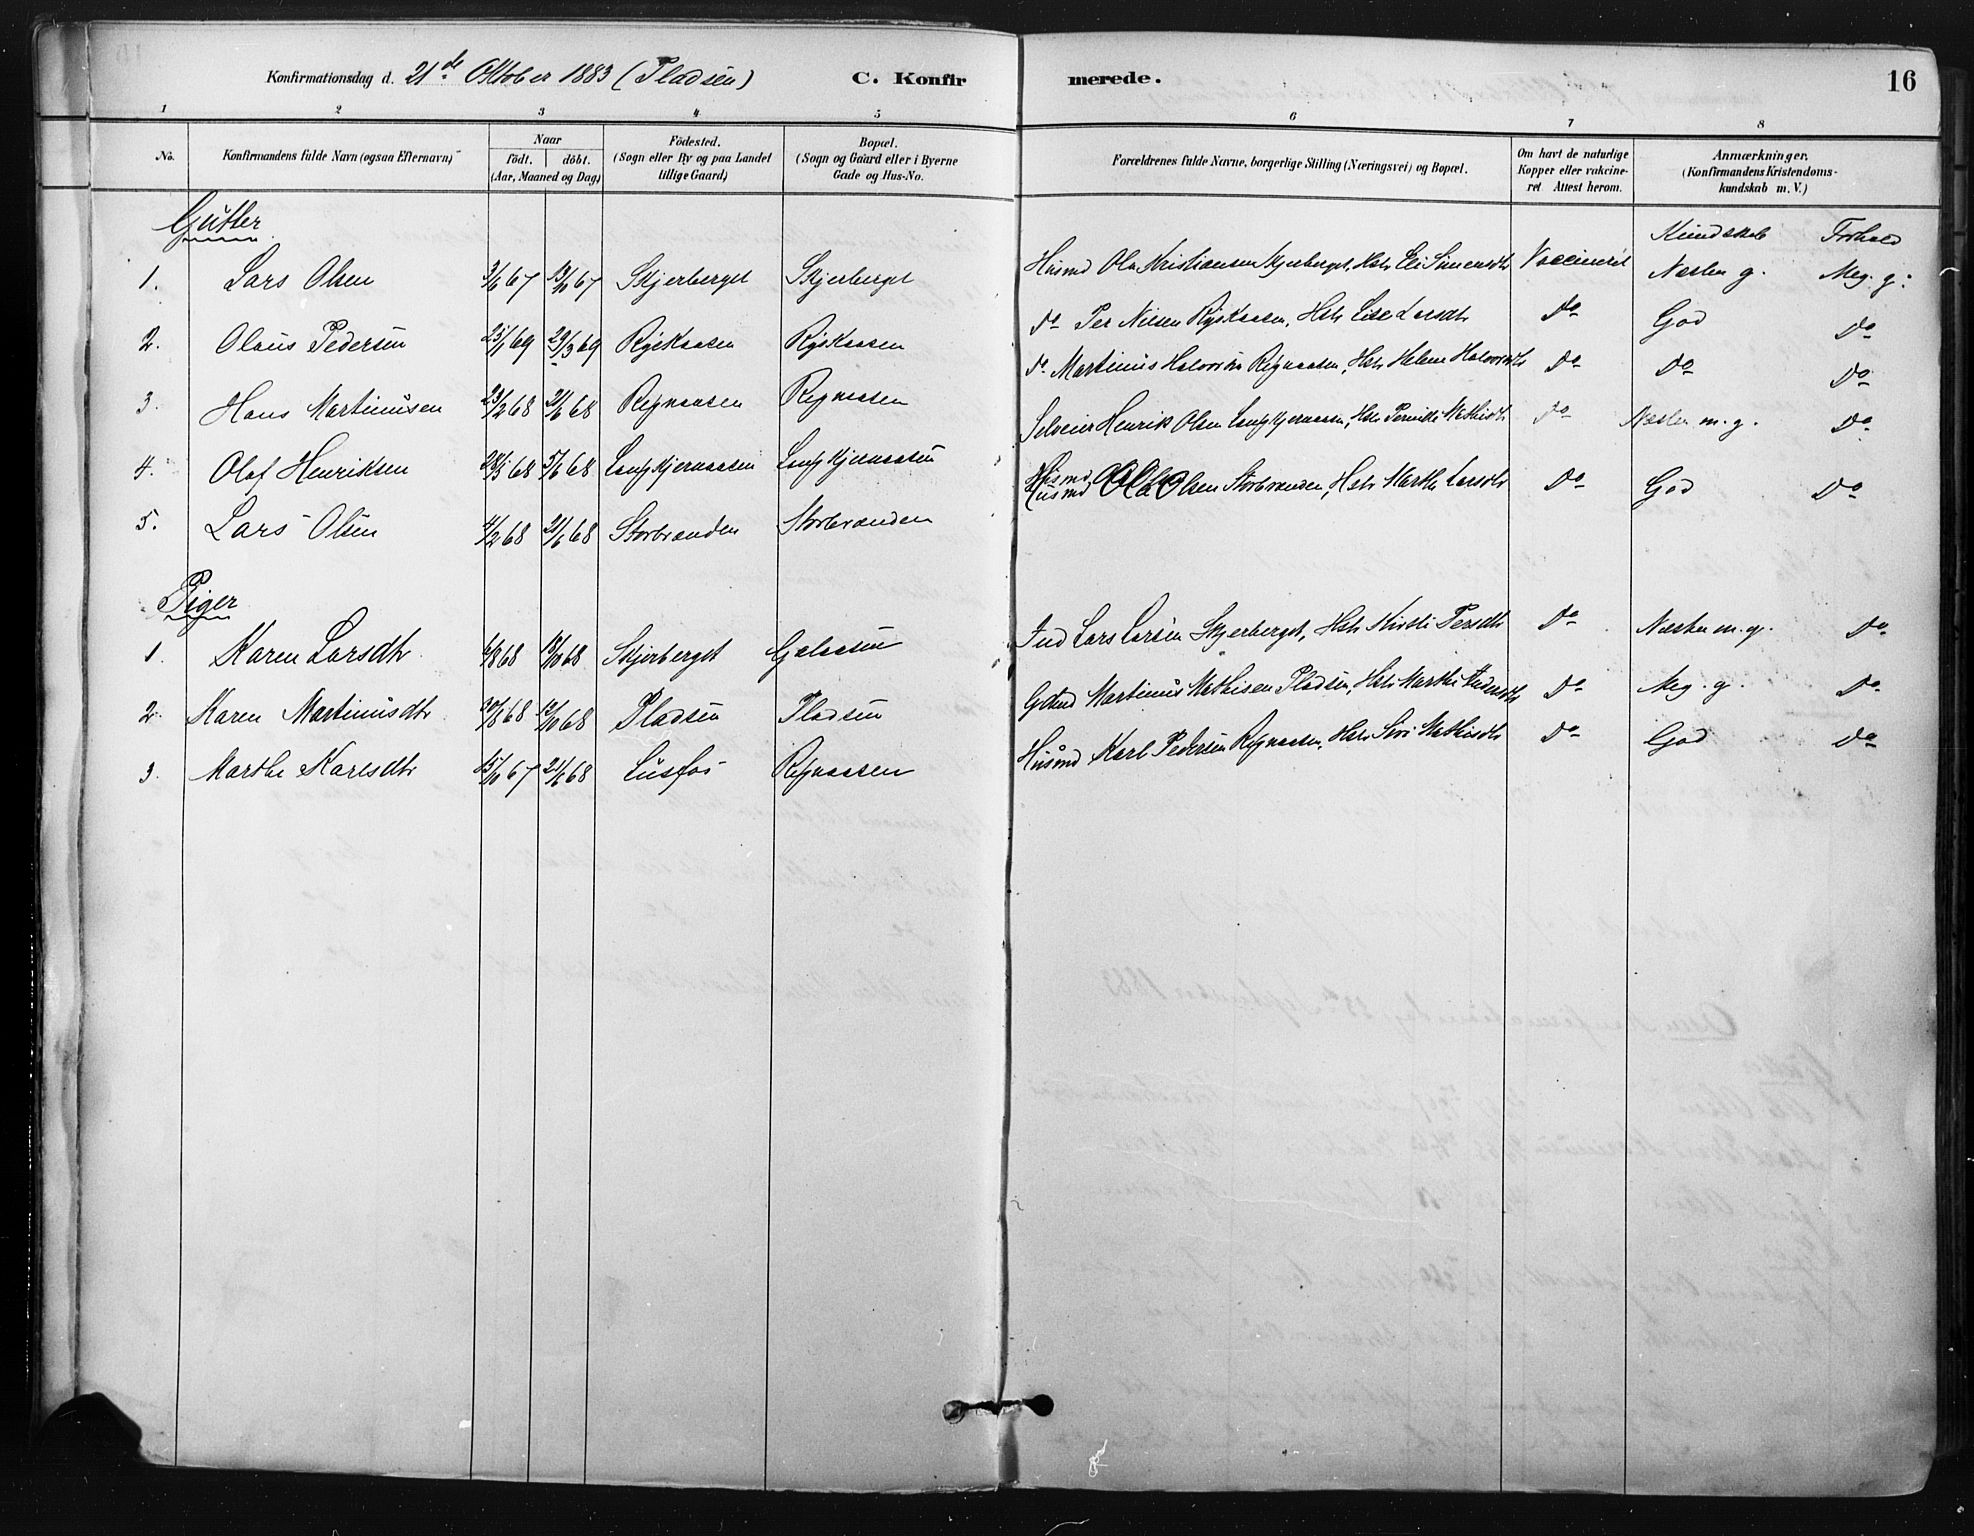 Konfirmationsdag d. 21de Oktober 1883 (Pladsen) C. Konfirmerede. 16
1 2 3 4 5 6 7 8
No. Konfirmandens fulde Navn (ogsaa Efternavn) Naar födt. döbt. (Aar, Maaned og Dag) Födested. (Sogn eller By og paa Landet tillige Gaard) Bopæl. (Sogn og Gaard eller i Byerne Gade og Hus-No. Forældrenes fulde Navne, borgerlige Stilling (Næringsvei) og Bopæl. Om havt de naturlige Kopper eller vakcineret Attest herom. Anmærkninger. (Konfirmandens Kristendomskundskab m. V.)
Gutter Kundskab Forhold
1. Lars Olsen 3/6 67 13/10 67 Skjerberget Skjerberget Husmd Ola Kristiansen Skjerberget, Hstr Eli Simensdtr Vaccineret Næsten g. Meg. g.
2. Olaus Pedersen 25/1 69 29/3 69 Ryskaasen Ryskaasen Do Per Nilsen Ryskaasen, Hstr Eise Larsdtr Do God Do
3. Hans Martinusen 23/12 68 21/6 68 Regnaasen Regnaasen Do Martinus Halvorsen Regnaasen, Hstr Helene Halvorsdtr Do Do Do
4. Olaf Henriksen 28/5 68 5/6 68 Langkjernaasen Langkjernaasen Selveier Henrik Olsen Langkjernaasen, Hstr Pernille Mathisdtr Do Næsten m. g. Do
5. Lars Olsen 4/2 68 21/6 68 Storbranden Storbranden Husmd Ola Olsen Storbranden, Hstr Marthe Larsdtr Do God Do
Piger
1. Karen Larsdtr 6/8 68 18/10 68 Skjerberget Galaasen Ind Lars Larsen Skjerberget, Hstr Kirsti Persdtr Do Næsten m. g. Do
2. Karen Martinusdtr 30/8 68 18/10 68 Pladsen Pladsen Martinus Mathisen Pladsen, Hstr Marthe Andersdtr Do Meg. g. Do
3. Marthe Karlsdtr 15/10 67 21/6 68 Lusfos Regnaasen Husmd Karl Pedersen Regnaasen, Hstr Siri Mathisdtr Do God Do